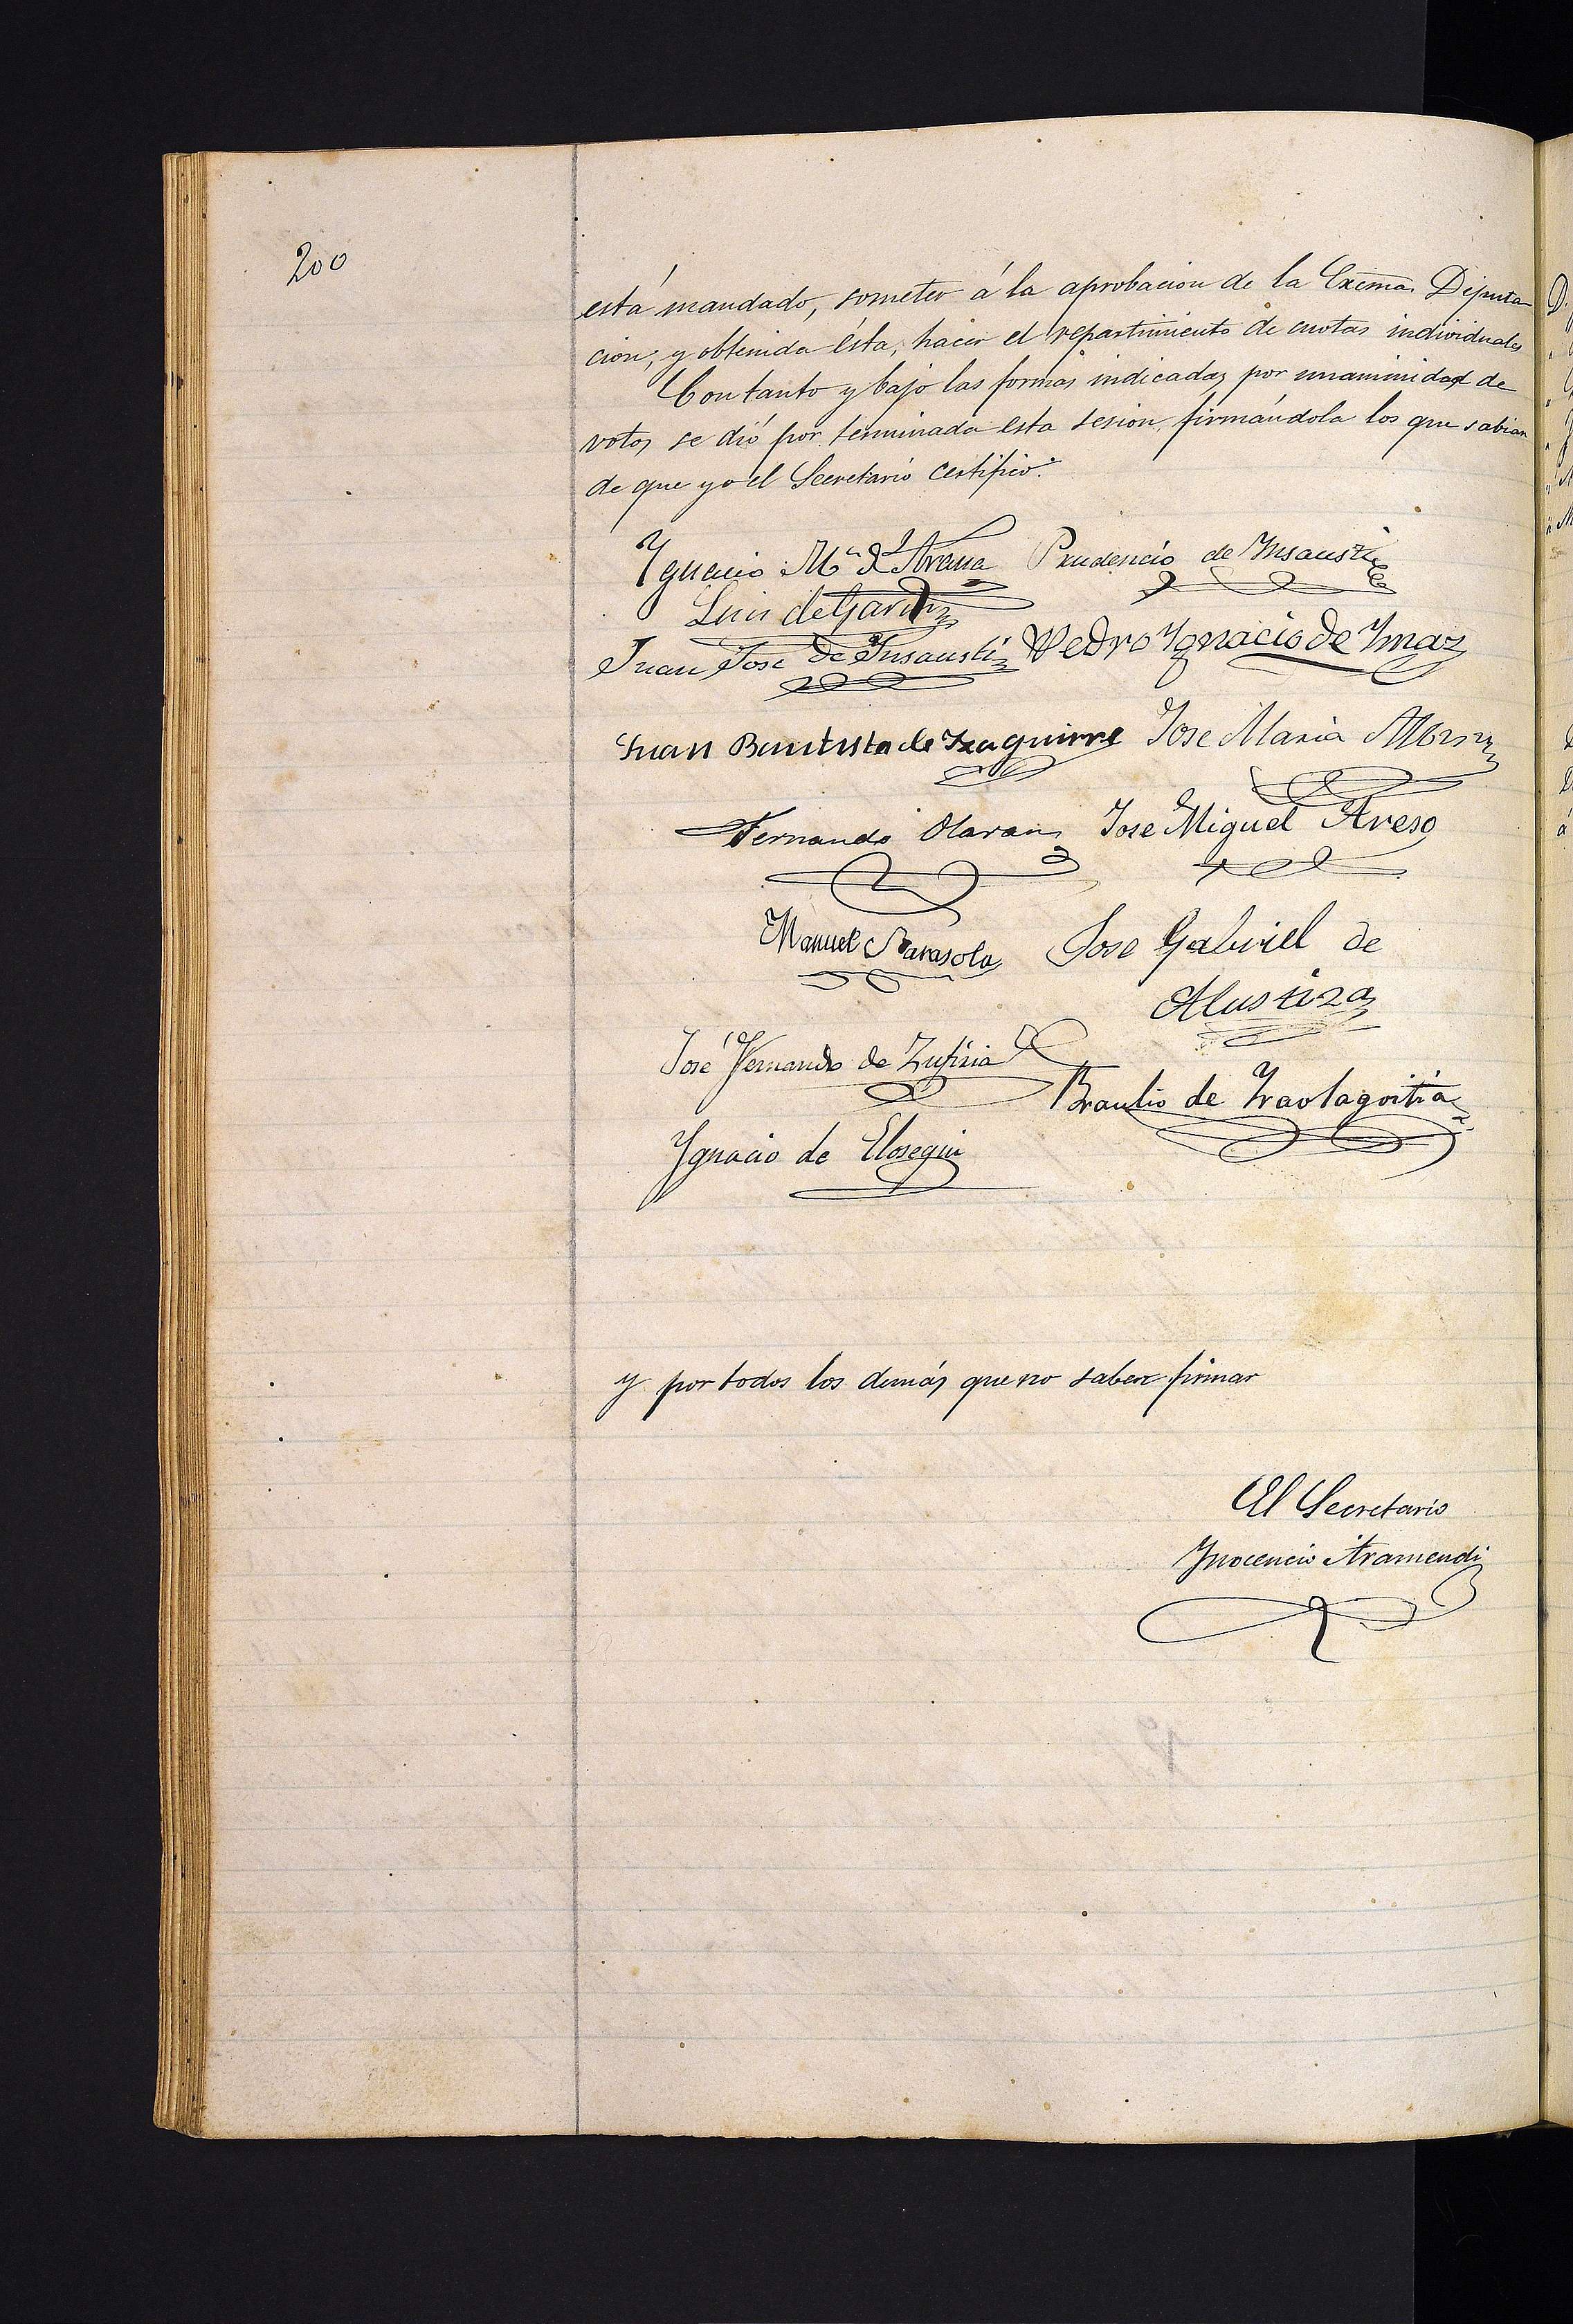 200
está mandado, someter á la aprobacion de la Excma Diputa
cion, y obtenida ésta, hacer el repartimiento de cuotas individuales
Con tanto y bajo las formas indicadas por unaminidad de
votos se dió por terminada esta sesion, firmándola los que sabian
de que yo el Secretario certifico.
Ygnacio Mª d Arana Prudencio de Insausti
Luis de Garin
Juan Jose de Insausti Pedro Ygnacio de Ymaz
Juan Bautista de Izaguirre Jose Maria
Fernando Olaran Jose Miguel Areso
Manuel Sarasola Jose Gabriel de
Alustiza
José Fernando de Zufiria
Braulio de Yraolagoitia
Ygnacio de Elosegui
y por todos los demás que no saben firmar
El Secretario
Ynocencio Aramendi